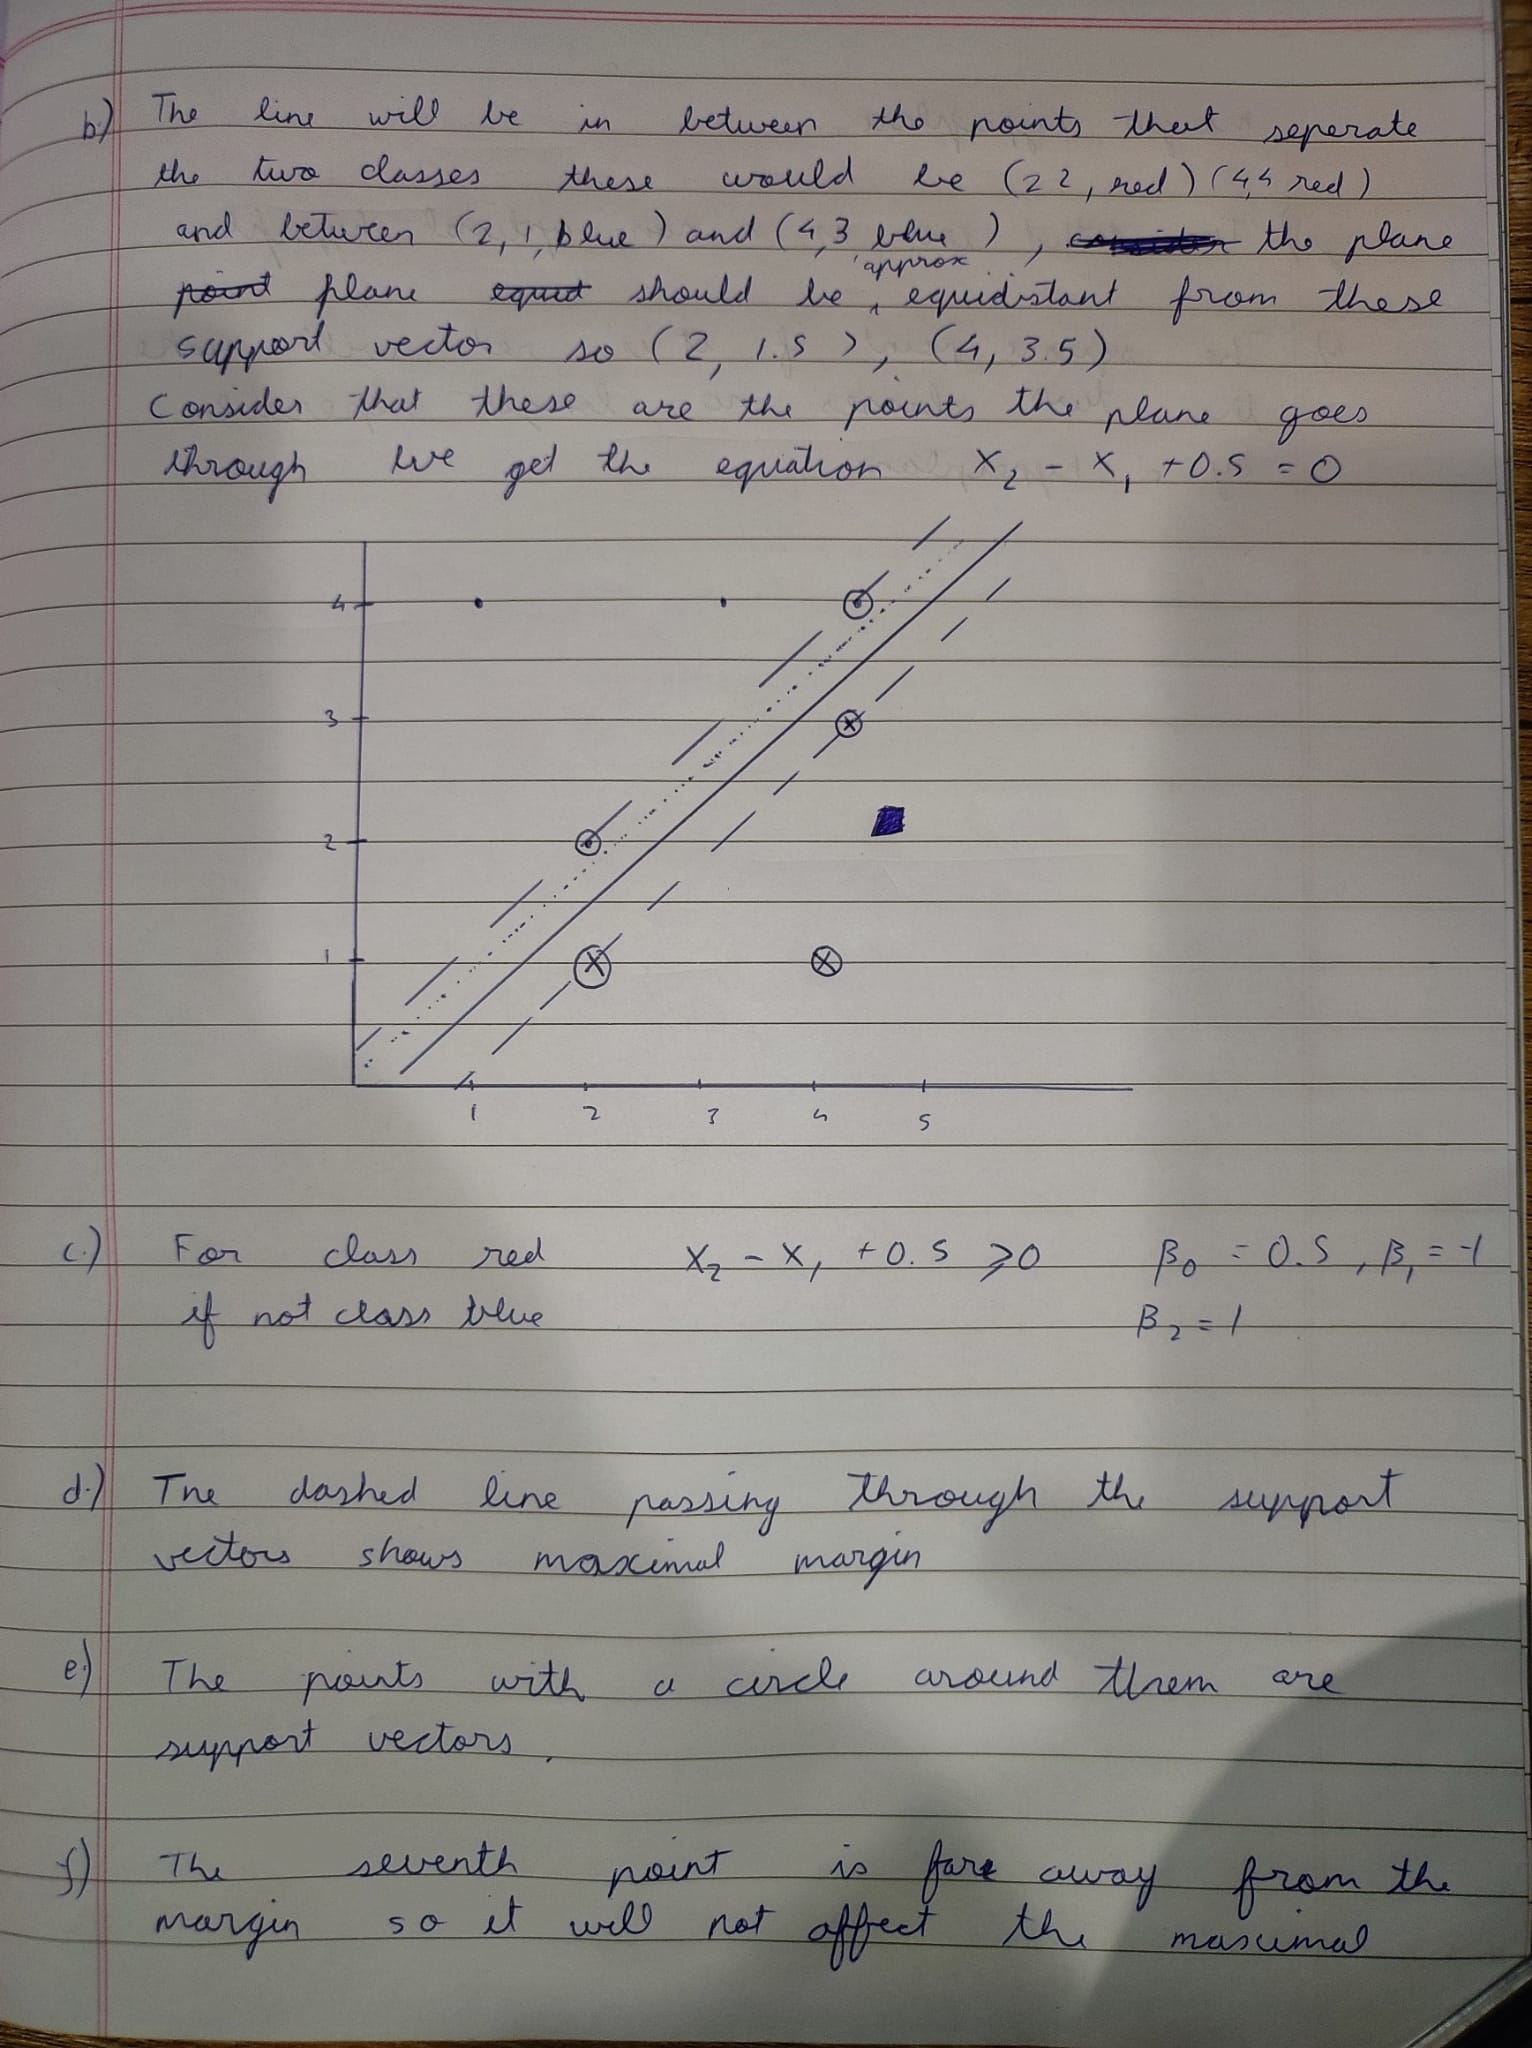 b.) The line will be in between the points that seperate
the two classes these would be (2 2, red) (4,4 red)
and between (2, 1, blue) and (4,3 blue), the plane
approx
point plane equid should be, equidistant from these
support vector so (2, 1.5), (4, 3.5)
Consider that these are the points the plane goes
through we get the equation X₂ - X₁ +0.5 = 0
4
3
2
1
1 2 3 4 5
c.) For class red X₂ - X₁ +0.5 ⩾0 β₀ = 0.5, β₁ = -1
if not class blue β₂ = 1
d.) The dashed line passing through the support
vectors shows maximal margin
e.) The points with a circle around them are
support vectors.
f) The seventh point is far away from the
margin so it will not affect the maximal